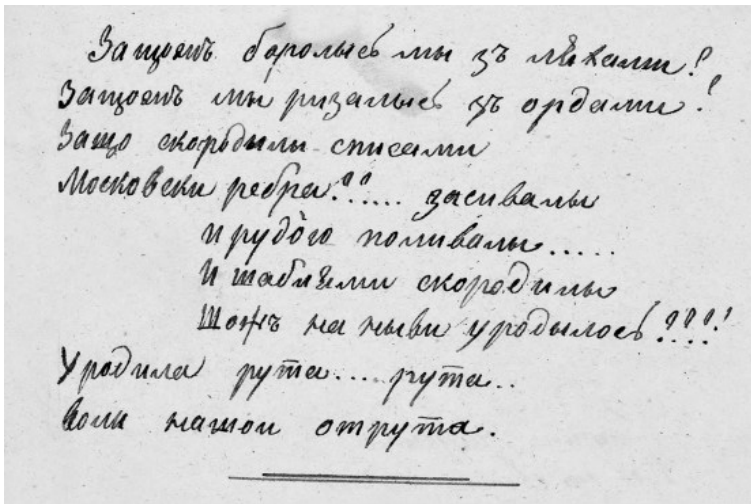 Защожъ боролысь мы зъ ляхами!
Защожъ мы ризалысь зъ ордами!
Защо скородылы списами
Московски ребра??..... засивалы
И рудою поливалы.....
И шаблями скородилы
Шожъ на ныви уродылось????!
Уродила рута.... рута..
воли нашои отрута.